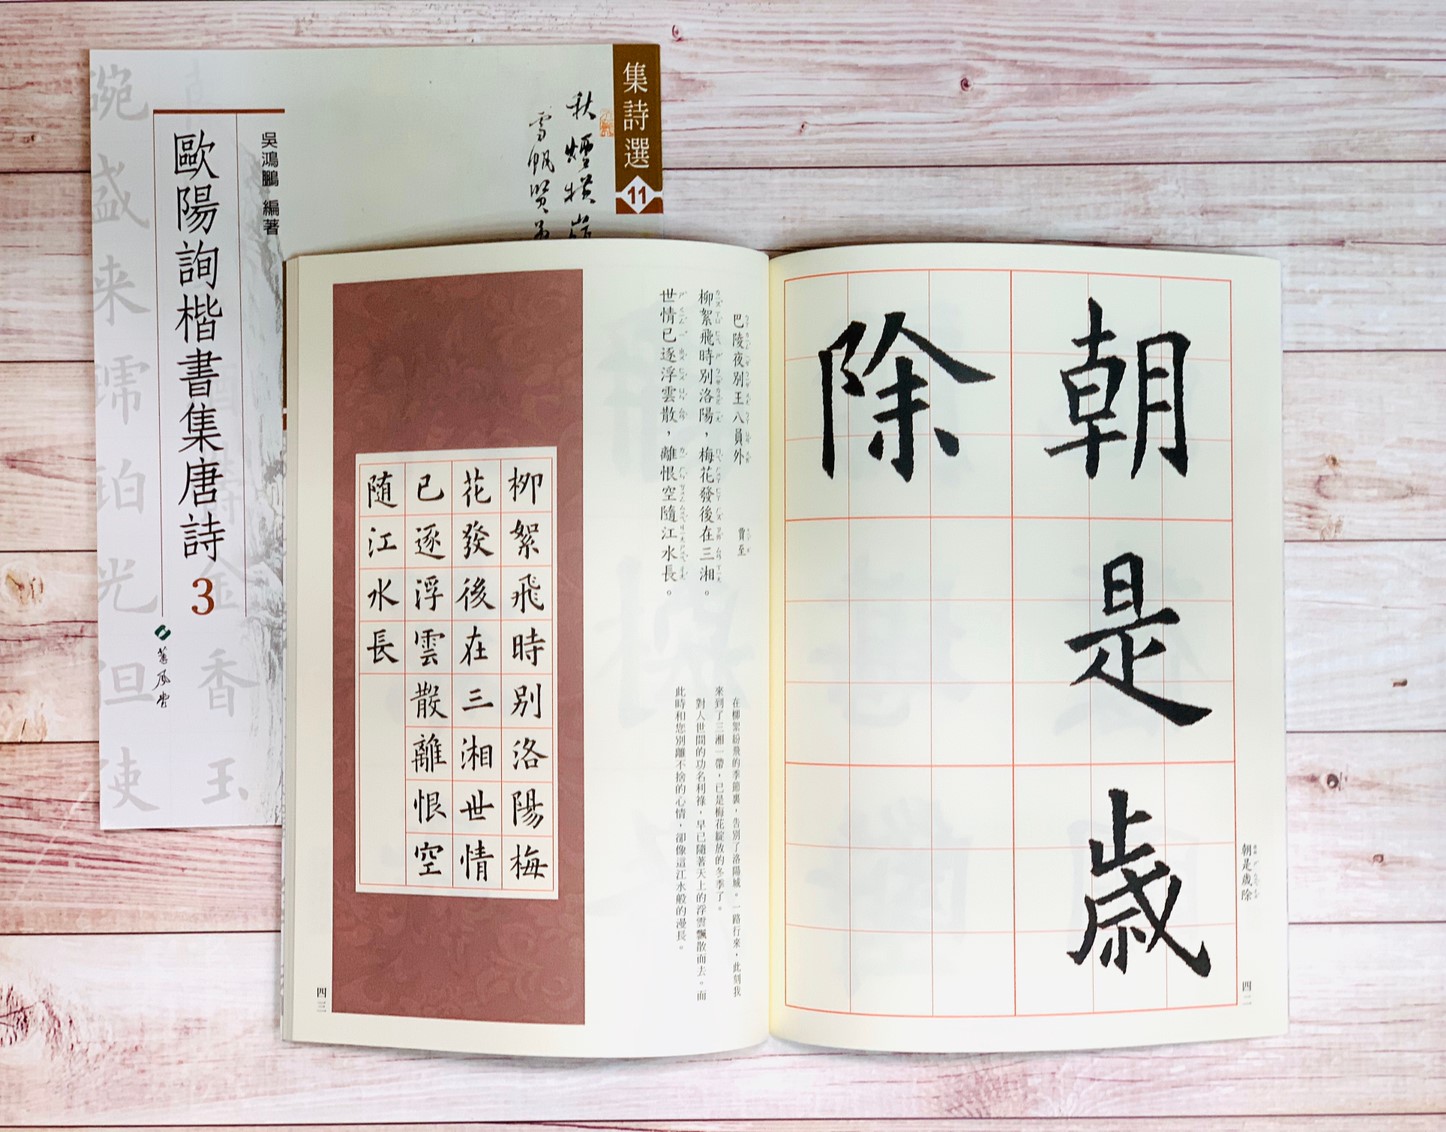 集詩選
11
秋煙横嶺
雪帆賢弟
吳鴻鵬 編著
歐陽詢楷書集唐詩3
蕙風堂
香玉
朝是歲
除
朝是歲除
四二
巴陵夜別王八員外 賈至
柳絮飛時別洛陽，梅花發後在三湘。
世情已逐浮雲散，離恨空隨江水長。
在柳絮紛飛的季節裏，告別了洛陽城。一路行來，此刻我
來到了三湘一帶，已是梅花綻放的冬季了。
對人世間的功名利祿，早已隨著天上的浮雲飄散而去。而
此時和您別離不捨的心情，卻像這江水般的漫長。
柳絮飛時別洛陽梅
花發後在三湘世情
已逐浮雲散離恨空
随江水長
四三